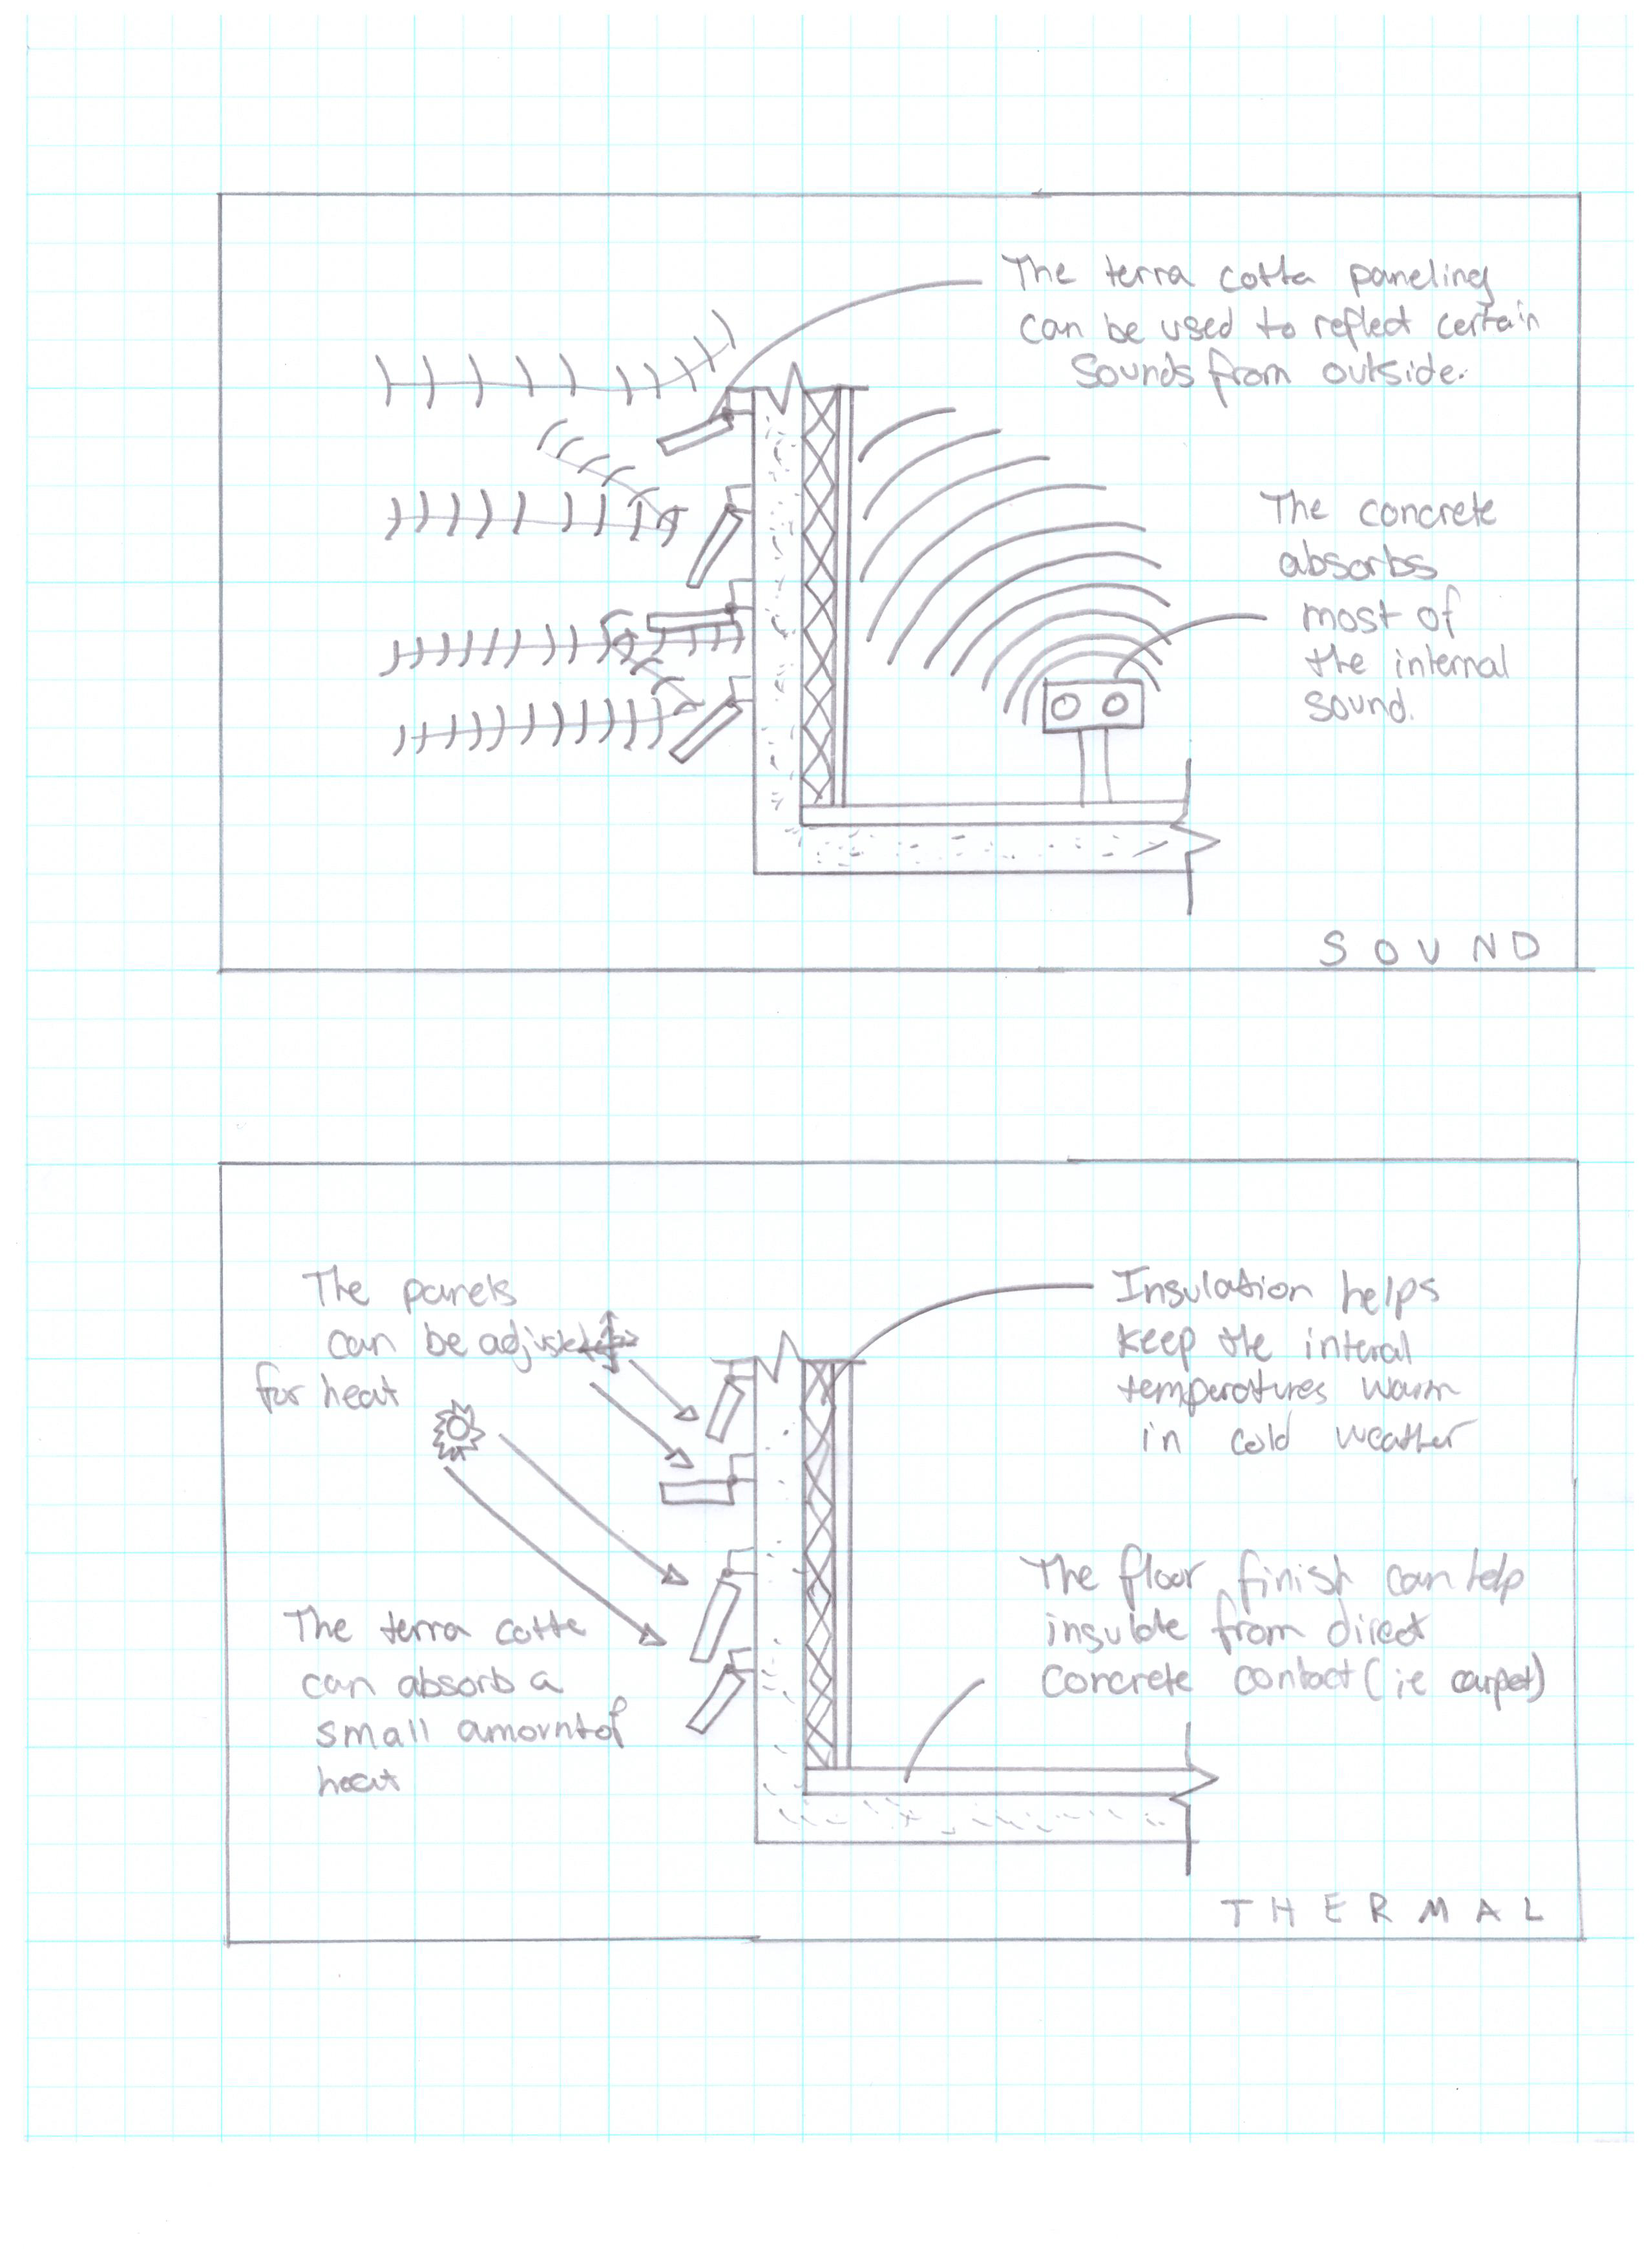 The terra cotta paneling
can be used to reflect certain
sounds from outside.
The concrete
absorbs
most of
the internal
sound.
SOUND
The panels
can be adjusted
for heat
Insulation helps
keep the interal
temperatures warm
in cold weather
The terra cotta
can absorb a
small amount of
heat
The floor finish can help
insulate from direct
concrete contact (ie carpet)
THERMAL